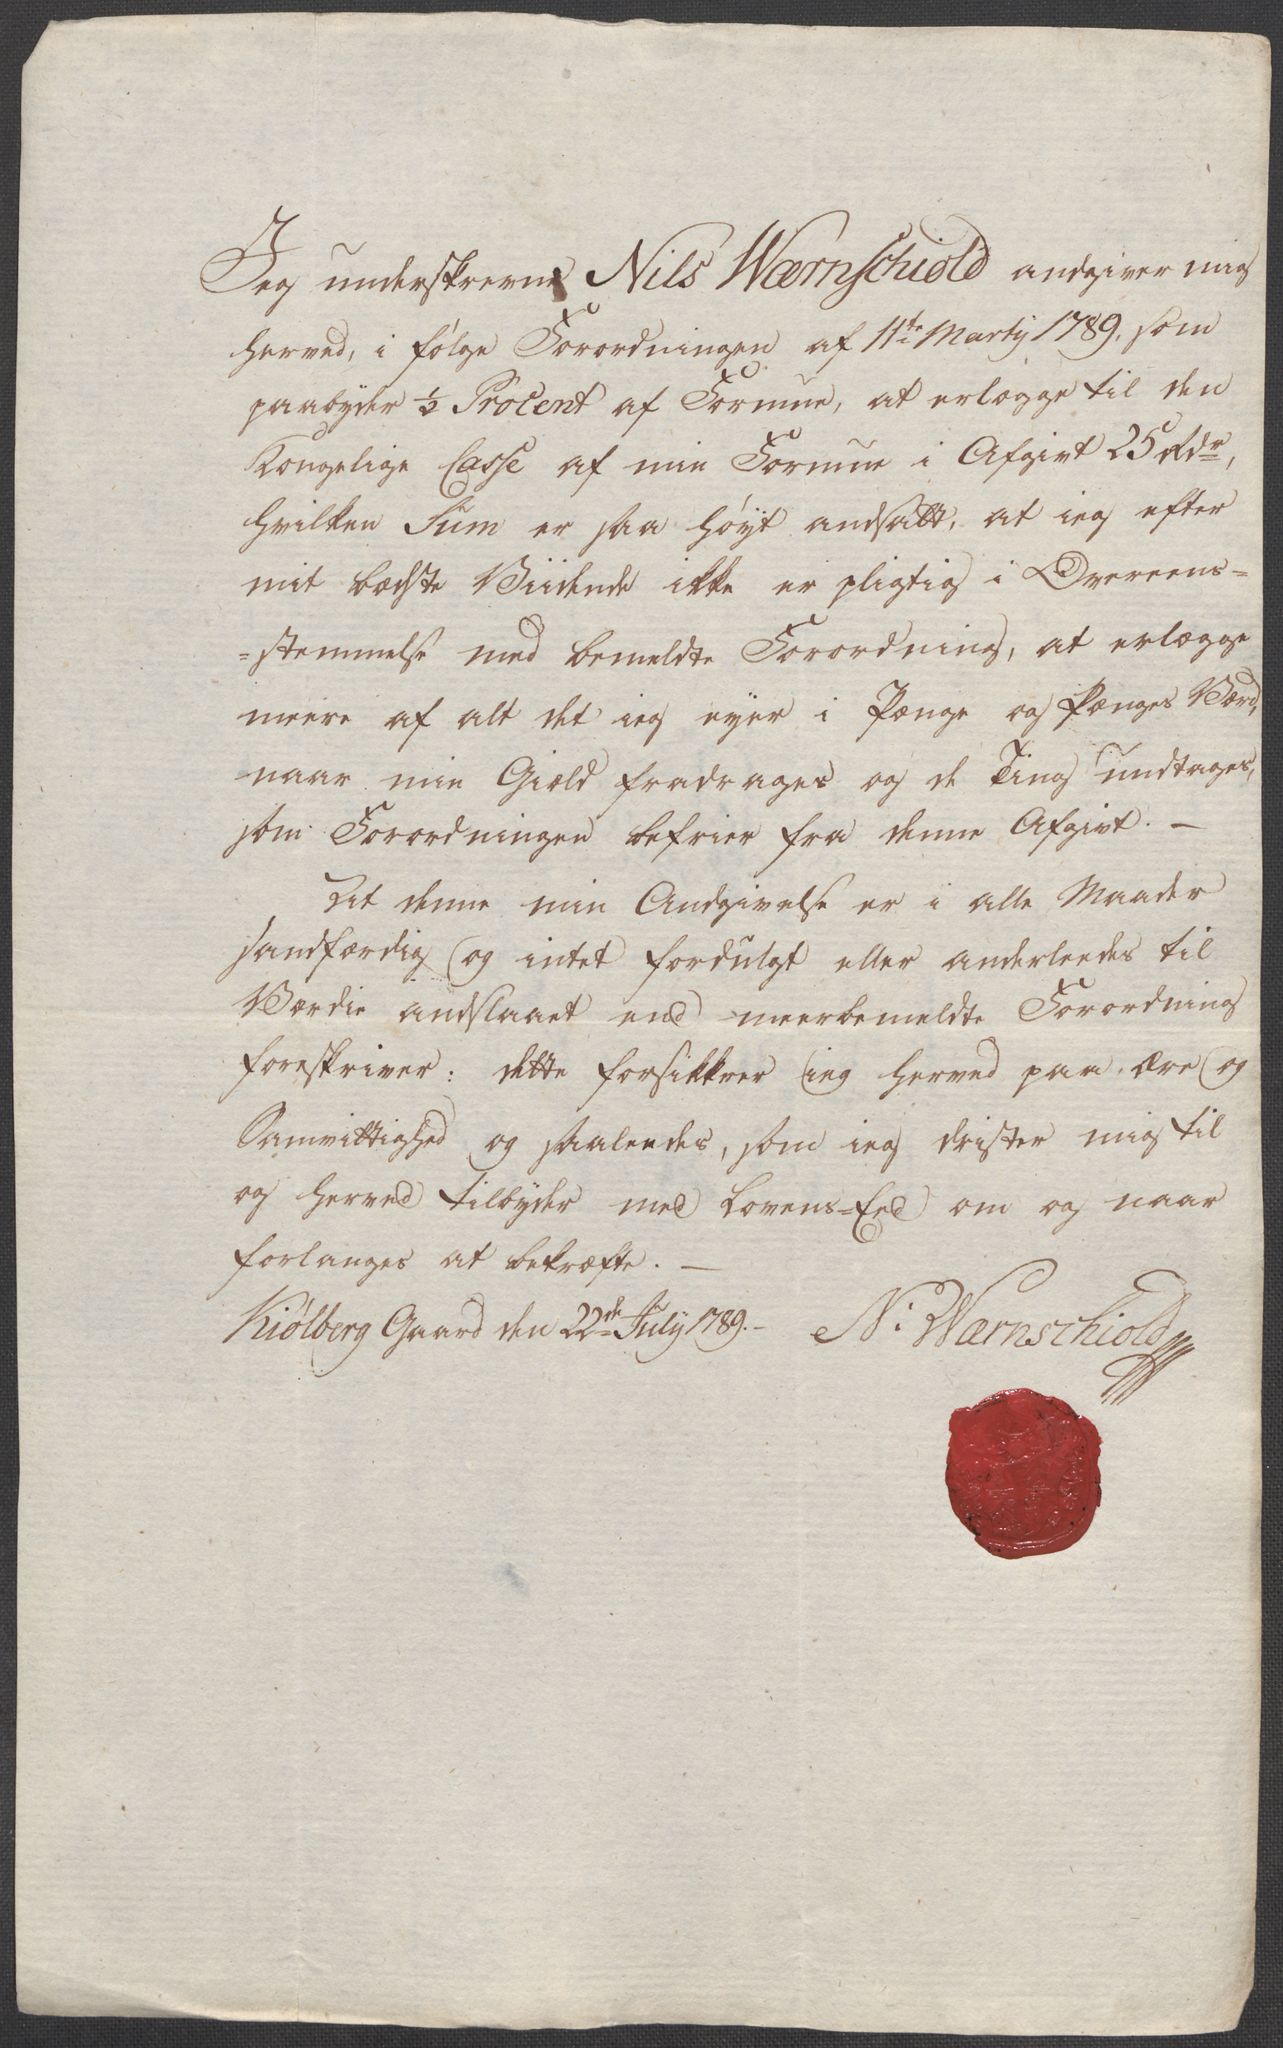 Jeg underskrevne Nils Wærnschiold andgiver mig
herved, i følge Forordningen af 11te Martij 1789, som
paabyder ½ Procent af Formue, at erlægge til den
Kongelige Casse af min Formue i Afgivt 25 Rdr,
hvilken Sum er saa høyt andsatt, at ieg efter
mit bædste Viidende ikke er pligtig i Overeens=
=stemmelse med bemeldte Forordning, at erlægge
meere af alt det ieg eyer i Penge og Penges Værd,
naar min Giæld fradrages og de Ting undtages,
som Forordningen befrier fra denne Afgivt. —
At denne min Andgivelse er i alle Maader
sandfærdig og intet fordulgt eller anderleedes til
Værdie andslaaet end meerbemeldte Forordning
foreskriver: dette forsikkrer ieg herved paa Ære og
Samvittighed og saaleedes, som ieg drister mig til
og herved tilbyder med Lovens=Eed om og naar
forlanges at bekræfte. —
Kiølberg Gaard den 22de July 1789. — N: Wærnschiold